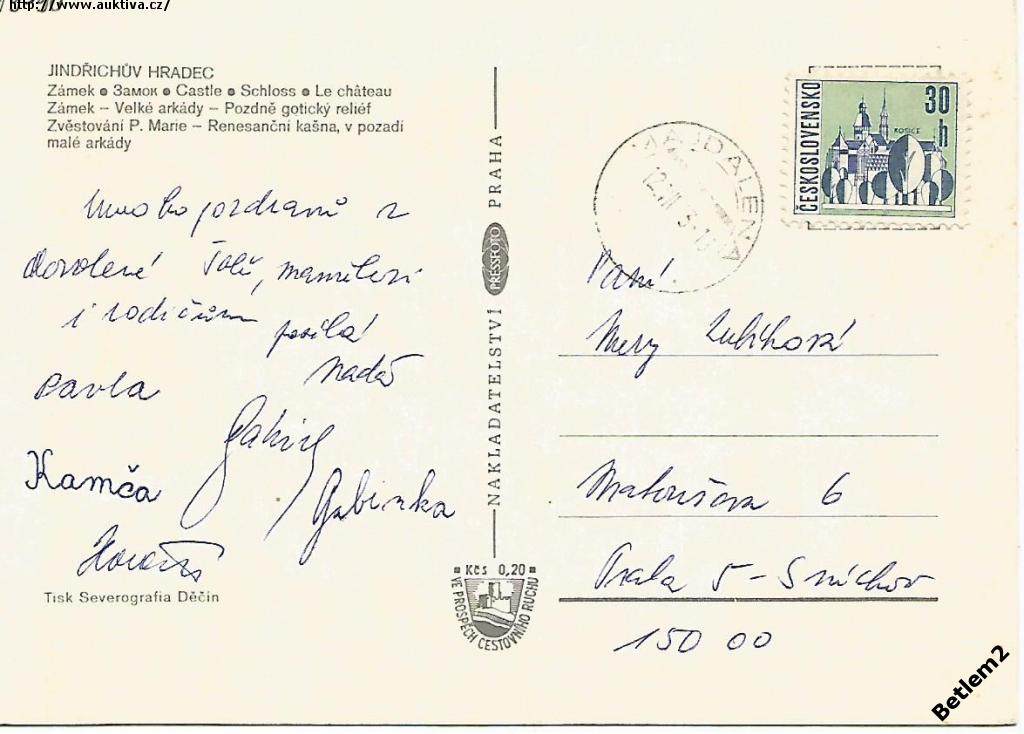 http://www.auktiva.cz/
JINDŘICHŮV HRADEC
Zámek ● Замок ● Castle ● Schloss ● Le château
Zámek – Velké arkády – Pozdně gotický reliéf
Zvěstování P. Marie – Renesanční kašna, v pozadí
malé arkády
Mnoho pozdravů z
dovolené Tobě, mamilce
i rodičům posílá
Naďa
Pavla
Kamča
Gabinka
Tisk Severografia Děčín
NAKLADATELSTVÍ PRESSFOTO PRAHA
Kčs 0,20
VE PROSPĚCH CESTOVNÍHO RUCHU
MAJDALENA
ČESKOSLOVENSKO
30 h
KOŠICE
Paní
Mery
Matoušova 6
Praha 5 – Smíchov
150 00
Betlem2